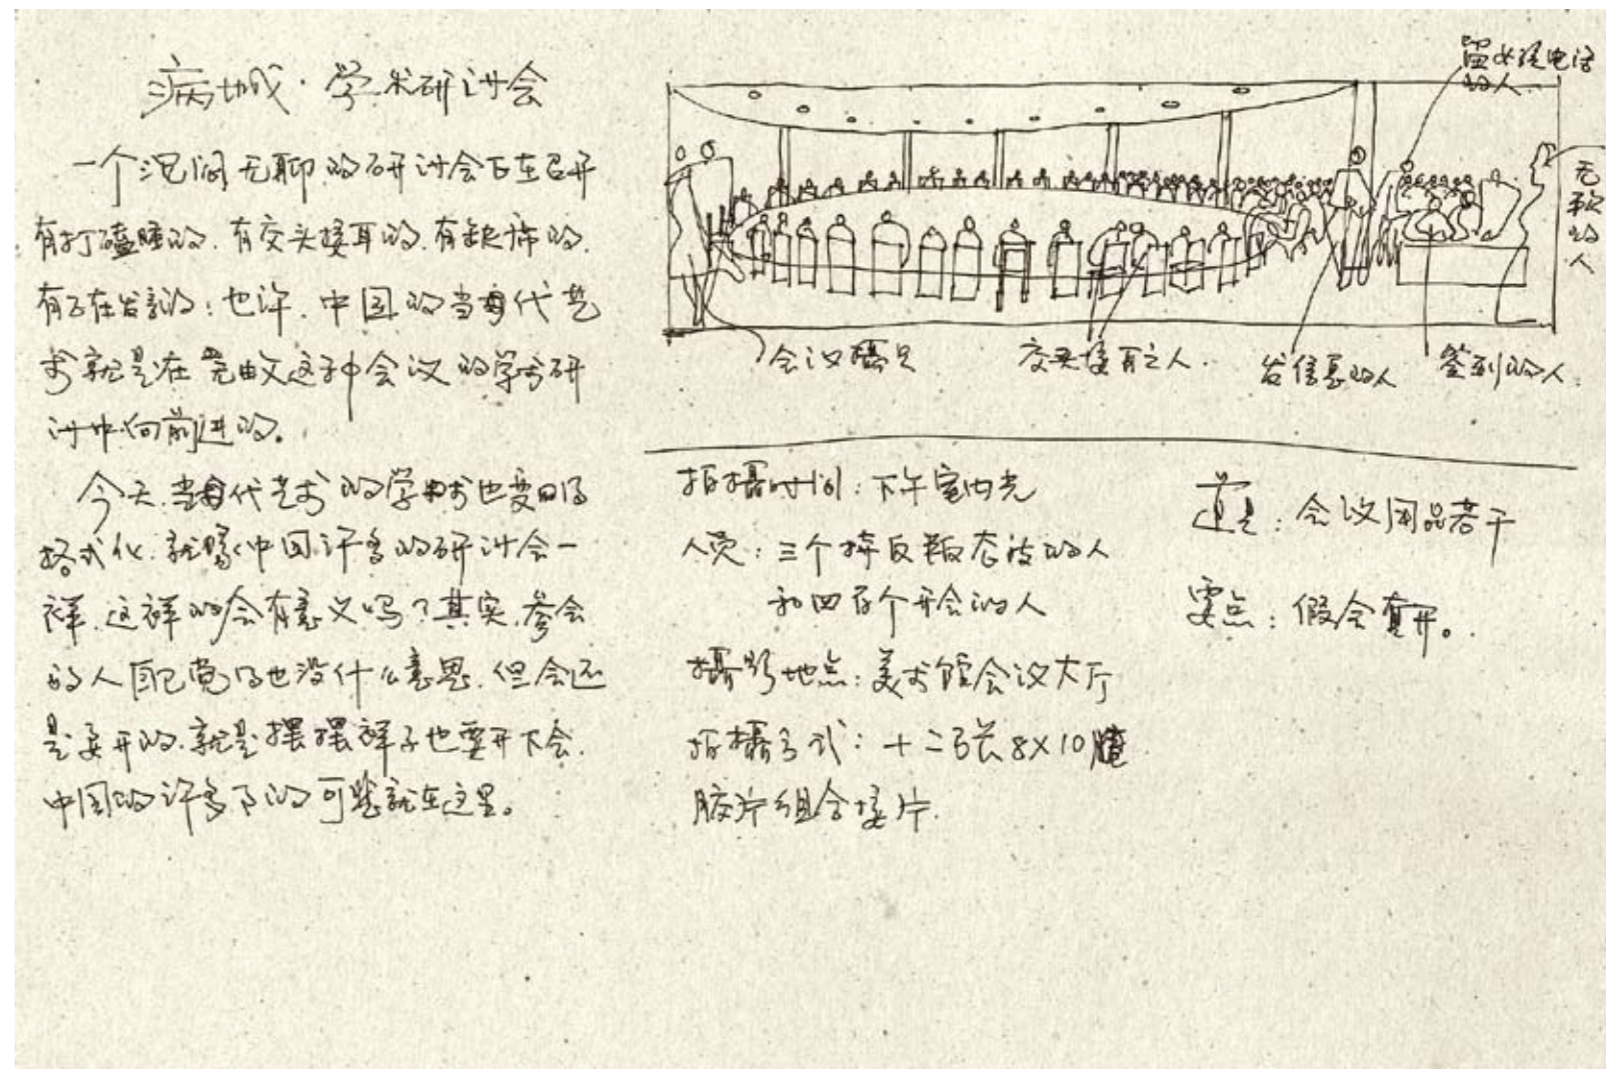 病城·学术研讨会
一个沉闷无聊的研讨会正在召开
有打瞌睡的.有交头接耳的.有缺席的.
有正在发言的：也许.中国的当代艺
术就是在这种会议的学术研
讨中向前进的。
今天.当代艺术的学术也变得
格式化.就像中国许多的研讨会一
样.这样的会有意义吗？其实.参会
的人自己觉得也没什么意思.但会还
是要开的.就是摆摆样子也要开下会.
中国的许多的可悲就在这里。
留女孩电话
的人
无聊的人
会议摄影
交头接耳之人.
发信息的人
签到的人.
拍摄时间：下午室内光
人员：三个摔反叛态波的人
和四百个开会的人
摄影地点：美术馆会议大厅
拍摄方式：十二张8×10
胶片组合接片.
道具：会议用品若干
要点：假会真开。